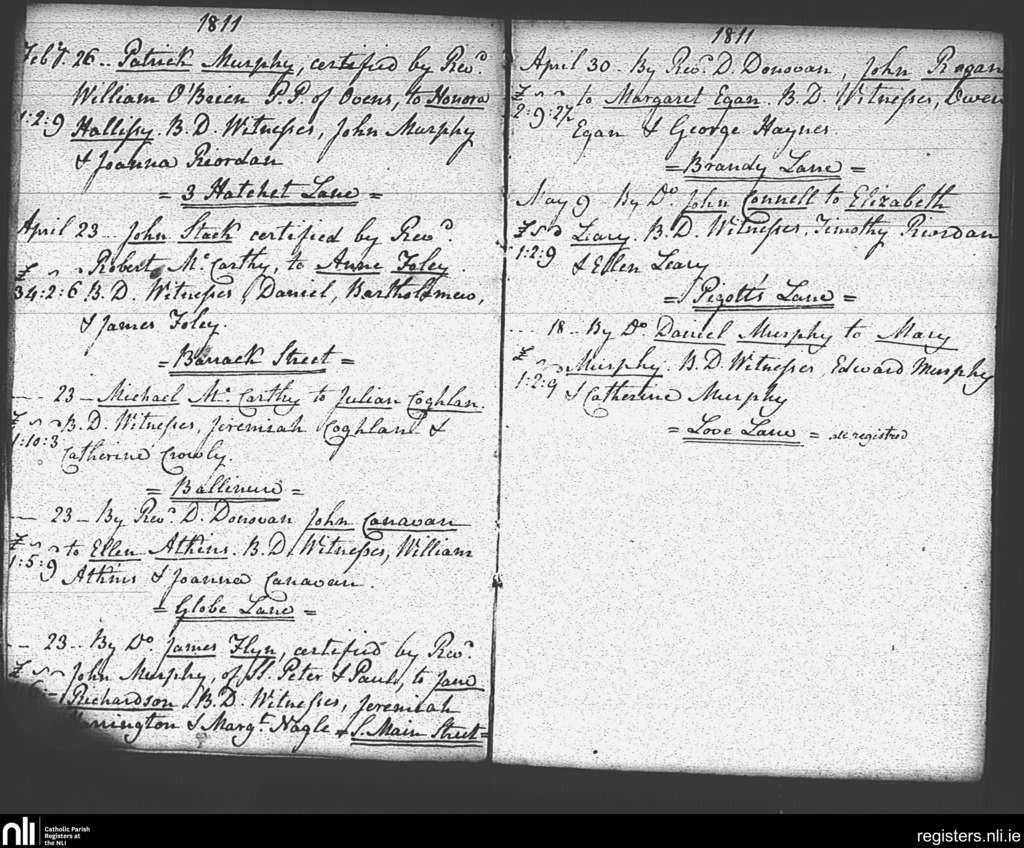 1811
Feby. 26 .. Patrick Murphy, certified by Revd.
William O'Brien P.P. of Ovens, to Honora
1:2:9 Hallissy. B.D. Witnesses, John Murphy
& Joanna Riordan
= 3 Hatchet Lane =
April 23 .. John Stack certified by Revd.
Robert McCarthy, to Anne Foley.
£ s d
34:2:6 B.D. Witnesses, Daniel, Bartholomew,
& James Foley.
= Barrack Street =
.. 23 – Michael Mc.Carthy to Julian Coghlan.
£ s d B.D. Witnesses, Jeremiah Coghlan &
1:10:3 Catherine Crowly.
= Ballinure =
– 23 – By Revd. D. Donovan John Canavan
£ s d to Ellen Atkins. B.D. Witnesses, William
1:5:9 Atkins & Joanna Canavan.
= Globe Lane =
.. 23 .. By Do. James Flyn, certified by Revd.
£ s d John Murphy, of St. Peter & Pauls, to Jane
Richardson. B.D. Witnesses, Jeremiah
& Margt. Nagle = S. Main Street =
1811
April 30 – By Revd. D. Donovan, John Ragan
£ s d to Margaret Egan. B.D. Witnesses, Owen
2:9:2½ Egan & George Haynes.
= Brandy Lane =
May 9 – By Do. John Connell to Elizabeth
£ s d Leary. B.D. Witnesses, Timothy Riordan
1:2:9 & Ellen Leary
= Pigott's Lane =
.. 18 – By Do. Daniel Murphy to Mary
£ s d Murphy. B.D. Witnesses, Edward Murphy
1:2:9 & Catherine Murphy
= Love Lane = all registred
nli Catholic Parish
Registers at
the NLI
registers.nli.ie